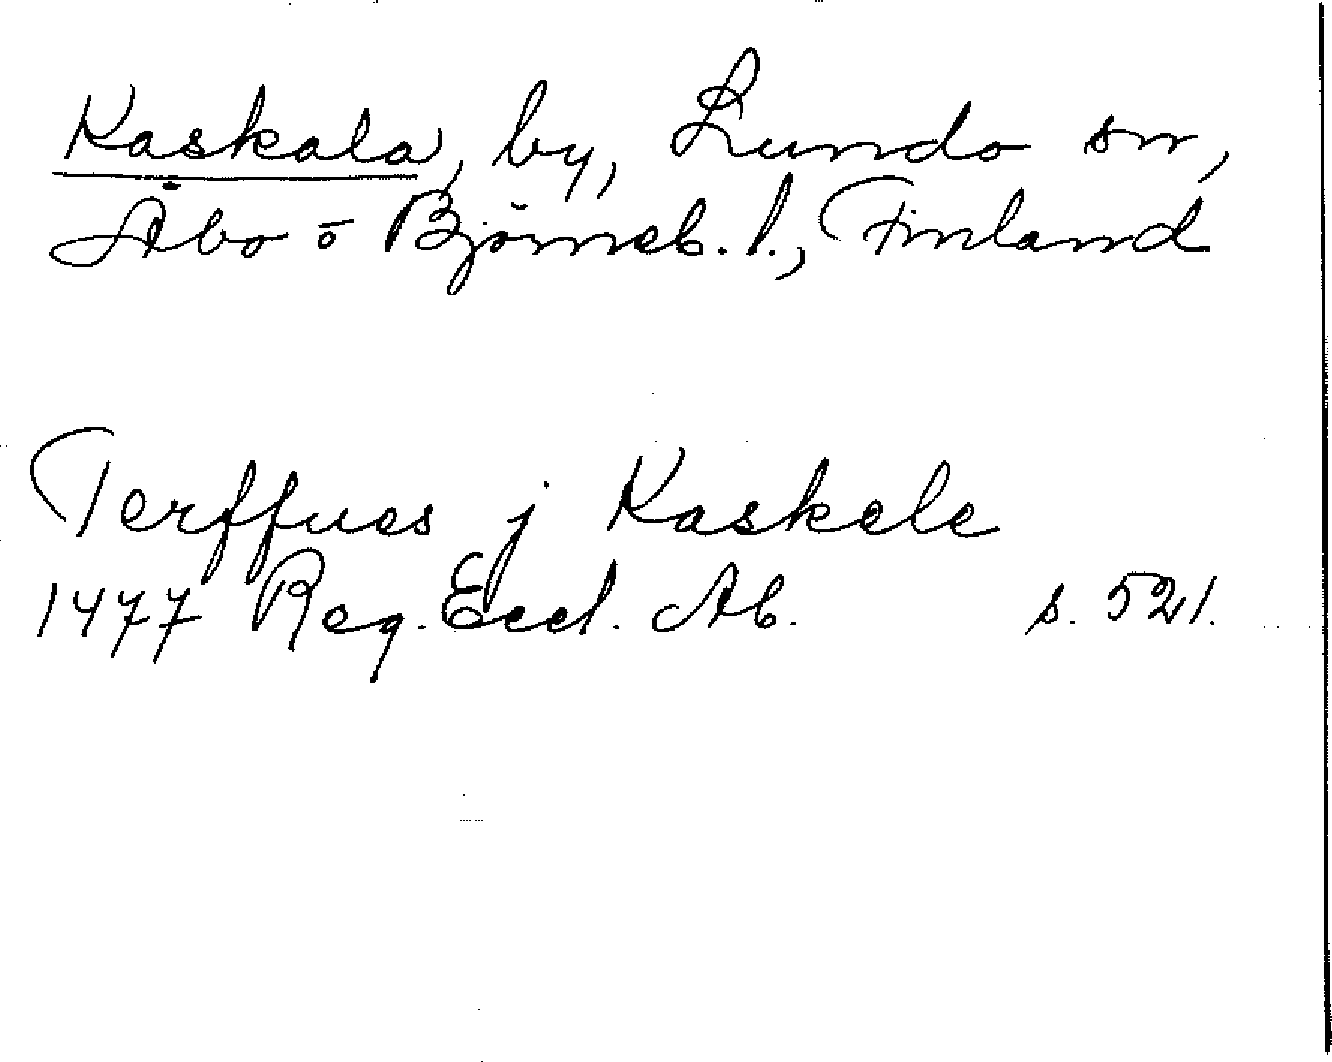 Kaskala, by, Lundo sn,
Åbo o Björneb. l., Finland
Terffues j Kaskele
1477 Reg. Eccl. Ab. s. 521.